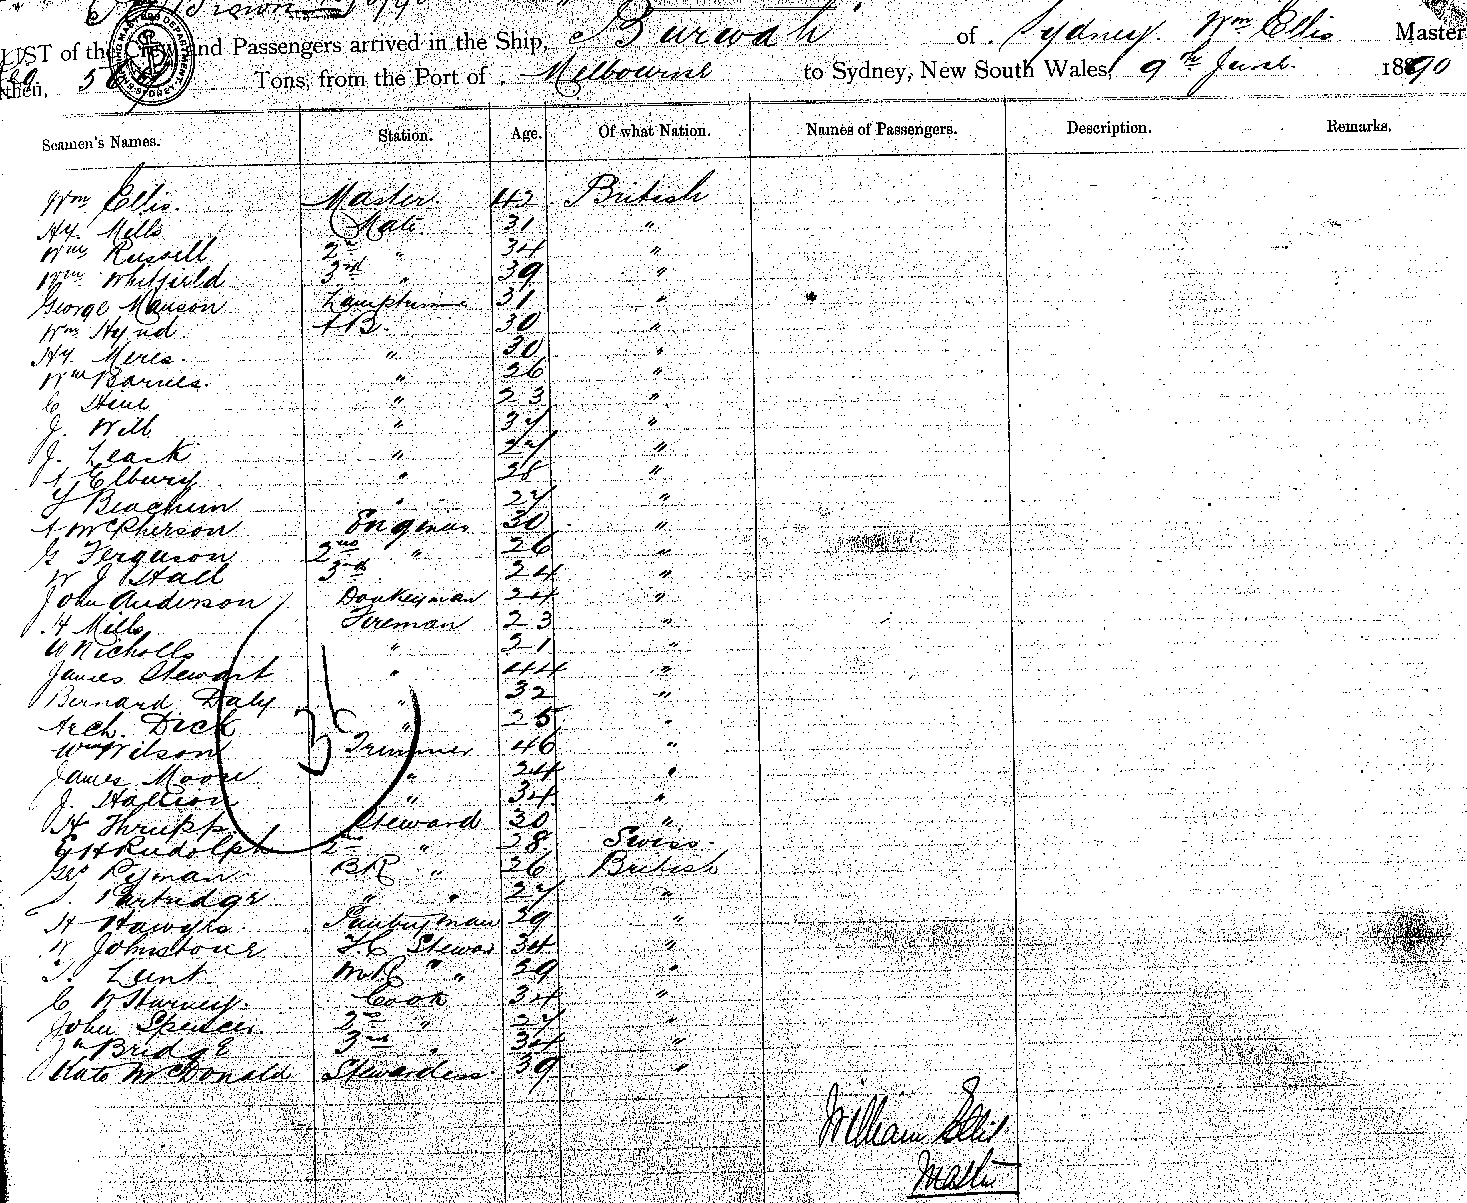 LIST of the Crew and Passengers arrived in the Ship, Burwah of Sydney Wm Ellis Master
Tons, from the Port of Melbourne to Sydney, New South Wales, 9th June 1890
Seamen's Names. Station. Age. Of what Nation. Names of Passengers. Description. Remarks.
Wm Ellis. Master 42 British
Hy. Mills Mate 31 "
Wm Russell 2nd " 34 "
Wm Whitfield 3rd " 39 "
George Manson Lamptrimr 31 "
Wm Hynd A B. 30 "
Hy Meres. " 30 "
Wm Barnes. " 26 "
C " 23 "
J. Will " 37 "
J. Leask " 27 "
A Elbury " 28 "
Beachem " 27 "
A McPherson Engineer 30 "
G Ferguson 2nd " 26 "
W J Hall 3rd 24 "
John Anderson Donkeyman 24 "
H Mills Fireman 23 "
W Nicholls " 21 "
James Stewart " 44 "
Bernard Daly " 32 "
Arch. Dick " 25 "
Wm Wilson Trimmer 46 "
James Moore " 24 "
J. " 34 "
H Thrupp Steward 30 "
E H Rudolph 2nd " 28 Swiss.
Geo Pyman BR " 26 British
Partridge " " 27 "
H Hawyrs. Pantryman 39 "
W Johnstone F.C Steward 34 "
T. Lunt. "  " 39 "
C W Harvey. Cook 34 "
John Spencer 2nd " 27 "
Bridge 3rd " 34 "
Kate McDonald Stewardess 39 "
36
William Ellis
Master